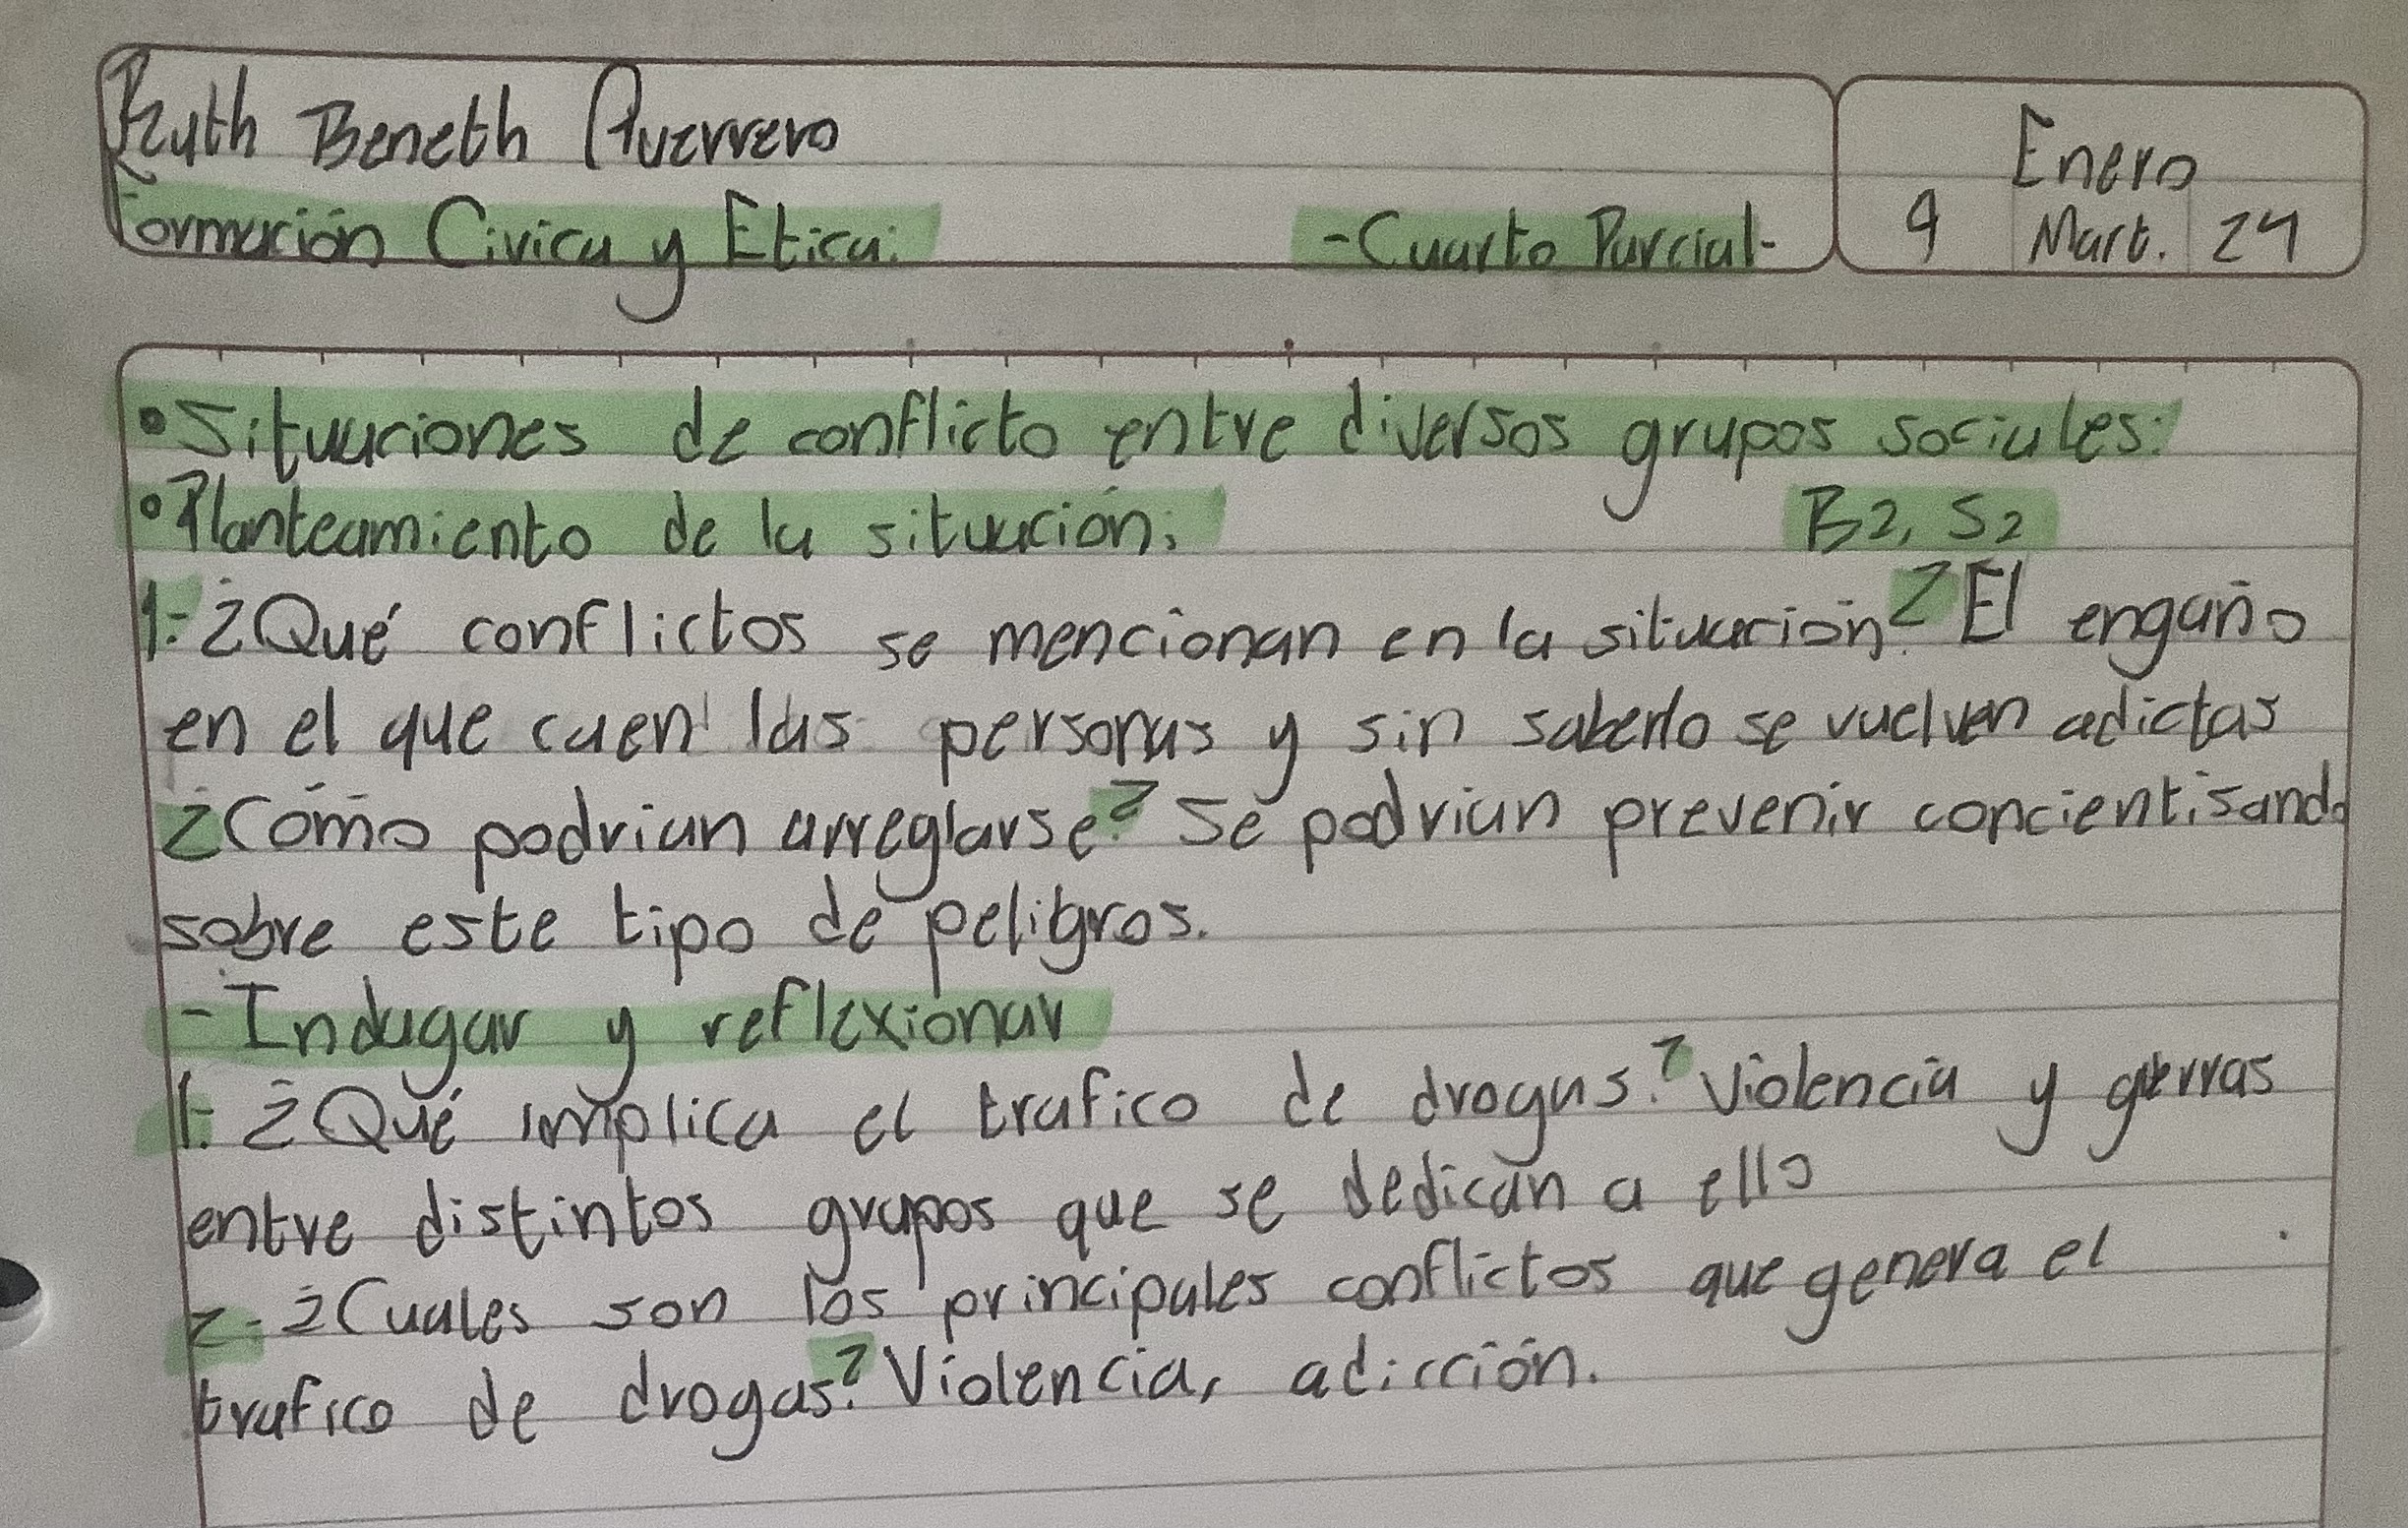 Ruth Beneth Guerrero
Enero
Formación Civica y Etica.
-Cuarto Parcial-
9 Mart. 24
• Situaciones de conflicto entre diversos grupos sociales:
• Planteamiento de la situación:
B2, S2
1.- ¿Qué conflictos se mencionan en la situación? El engaño
en el que caen las personas y sin saberlo se vuelven adictas
¿Cómo podrian arreglarse? Se podrian prevenir concientisando
sobre este tipo de peligros.
- Indagar y reflexionar
1. ¿Qué implica el trafico de drogas? Violencia y guerras
entre distintos grupos que se dedican a ello
2- ¿Cuales son los principales conflictos que genera el
trafico de drogas? Violencia, adicción.